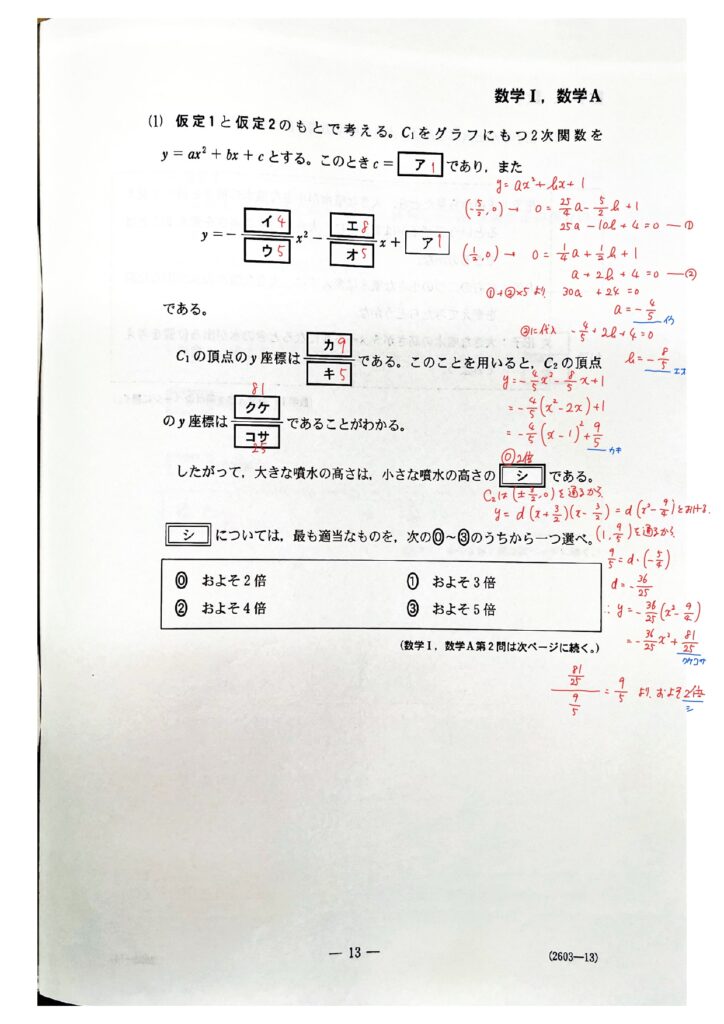 数学Ⅰ，数学A
(1) 仮定1と仮定2のもとで考える。C₁をグラフにもつ2次関数を
y = ax² + bx + c とする。このとき c = ア 1 であり，また
y = ax² + bx + 1
(-5/2, 0) → 0 = 25/4 a - 5/2 b + 1
25a - 10b + 4 = 0 —①
y = - イ 4 / ウ 5 x² - エ 8 / オ 5 x + ア 1
(1/2, 0) → 0 = 1/4 a + 1/2 b + 1
a + 2b + 4 = 0 —②
①+②×5 より 30a + 24 = 0
a = -4/5
イウ
である。
②に代入 -4/5 + 2b + 4 = 0
b = -8/5
エオ
C₁の頂点のy座標は カ 9 / キ 5 である。このことを用いると，C₂の頂点
y = -4/5 x² - 8/5 x + 1
= -4/5 (x² - 2x) + 1
= -4/5 (x - 1)² + 9/5
カキ
81
のy座標は クケ / コサ であることがわかる。
25
⓪ 2倍
したがって，大きな噴水の高さは，小さな噴水の高さの シ である。
C₂は (±3/2, 0) を通るから
y = d(x + 3/2)(x - 3/2) = d(x² - 9/4) とおける.
シ については，最も適当なものを，次の⓪～③のうちから一つ選べ。
(1, 9/5) を通るから
9/5 = d・(-5/4)
d = -36/25
∴ y = -36/25 (x² - 9/4)
= -36/25 x² + 81/25
クケコサ
⓪ およそ2倍 ① およそ3倍
② およそ4倍 ③ およそ5倍
(数学Ⅰ，数学A第2問は次ページに続く。)
81/25 / 9/5 = 9/5 より およそ2倍
シ
— 13 —
(2603—13)